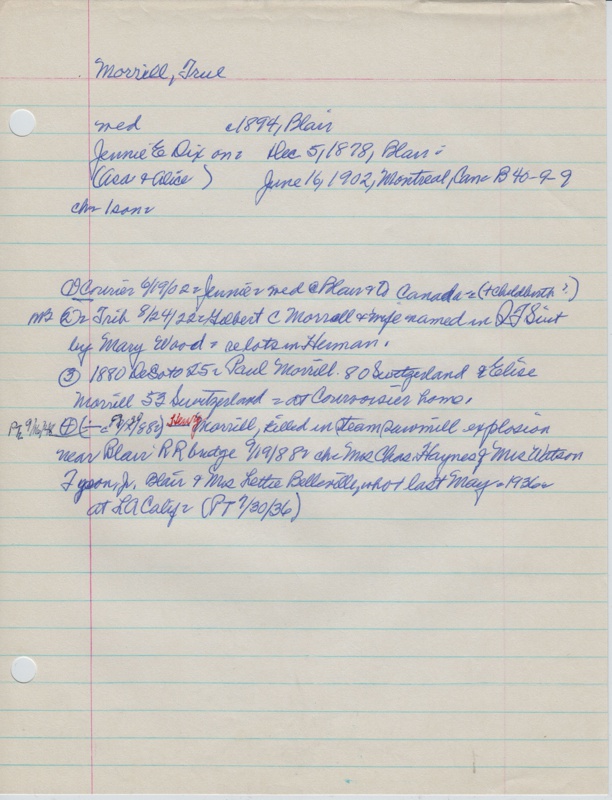 Morrill, True
wed c1894, Blair
Jennie E Dix on= Dec 5, 1878, Blair=
(Asa & Alice ) June 16, 1902, Montreal, Can= B 40-9-9
ch= 1 son=
① Courier 6/19/02= Jennie= wed @ Blair & D Canada= (+ childbirth ?)
② = Trib 8/24/22= Hobert C Morrell & wife named in Q T Suit
by Mary Wood = re lots in Herman.
③ 1880 DeSoto 25= Paul Morrill 80 Switzerland & Elise
Morrill 53 Switzerland = at Courvoisier home.
④ (— c 9/19/88=) Henry Morrill, killed in steam sawmill explosion
near Blair RR bridge 9/19/88= ch= Mrs Chas. Haynes & Mrs Watson
Tyson, Jr. Blair & Mrs Lettie Belleville, who + last May = 1936=
at LA Calif= (PT 7/30/36)